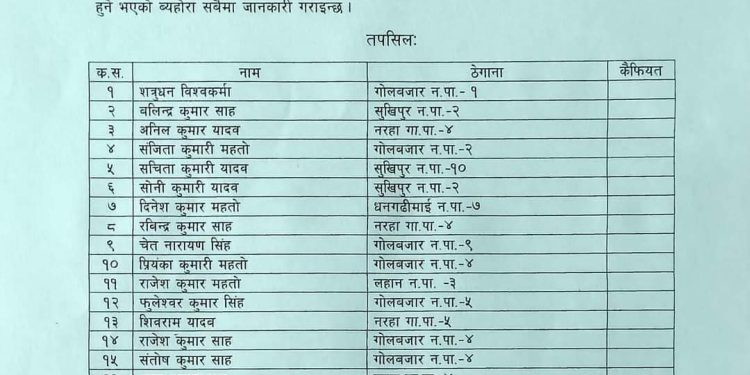 हुने भएको व्यहोरा सर्वैमा जानकारी गराइन्छ ।
तपसिल:
क.स. नाम ठेगाना कैफियत
१ शत्रुधन विश्वकर्मा गोलबजार न.पा.- १
२ बलिन्द्र कुमार साह सुखिपुर न.पा.-२
३ अनिल कुमार यादव नरहा गा.पा.-४
४ संजिता कुमारी महतो गोलबजार न.पा.-२
५ सचिता कुमारी यादव सुखिपुर न.पा.-१०
६ सोनी कुमारी यादव सुखिपुर न.पा.-२
७ दिनेश कुमार महतो धनगढीमाई न.पा.-७
८ रबिन्द्र कुमार साह नरहा गा.पा.-४
९ चेत नारायण सिंह गोलबजार न.पा.-९
१० प्रियंका कुमारी महतो गोलबजार न.पा.-४
११ राजेश कुमार महतो लहान न.पा. -३
१२ फुलेश्वर कुमार सिंह गोलबजार न.पा.-५
१३ शिवराम यादव नरहा गा.पा.-५
१४ राजेश कुमार साह गोलबजार न.पा.-४
१५ संतोष कुमार साह गोलबजार न.पा.-४